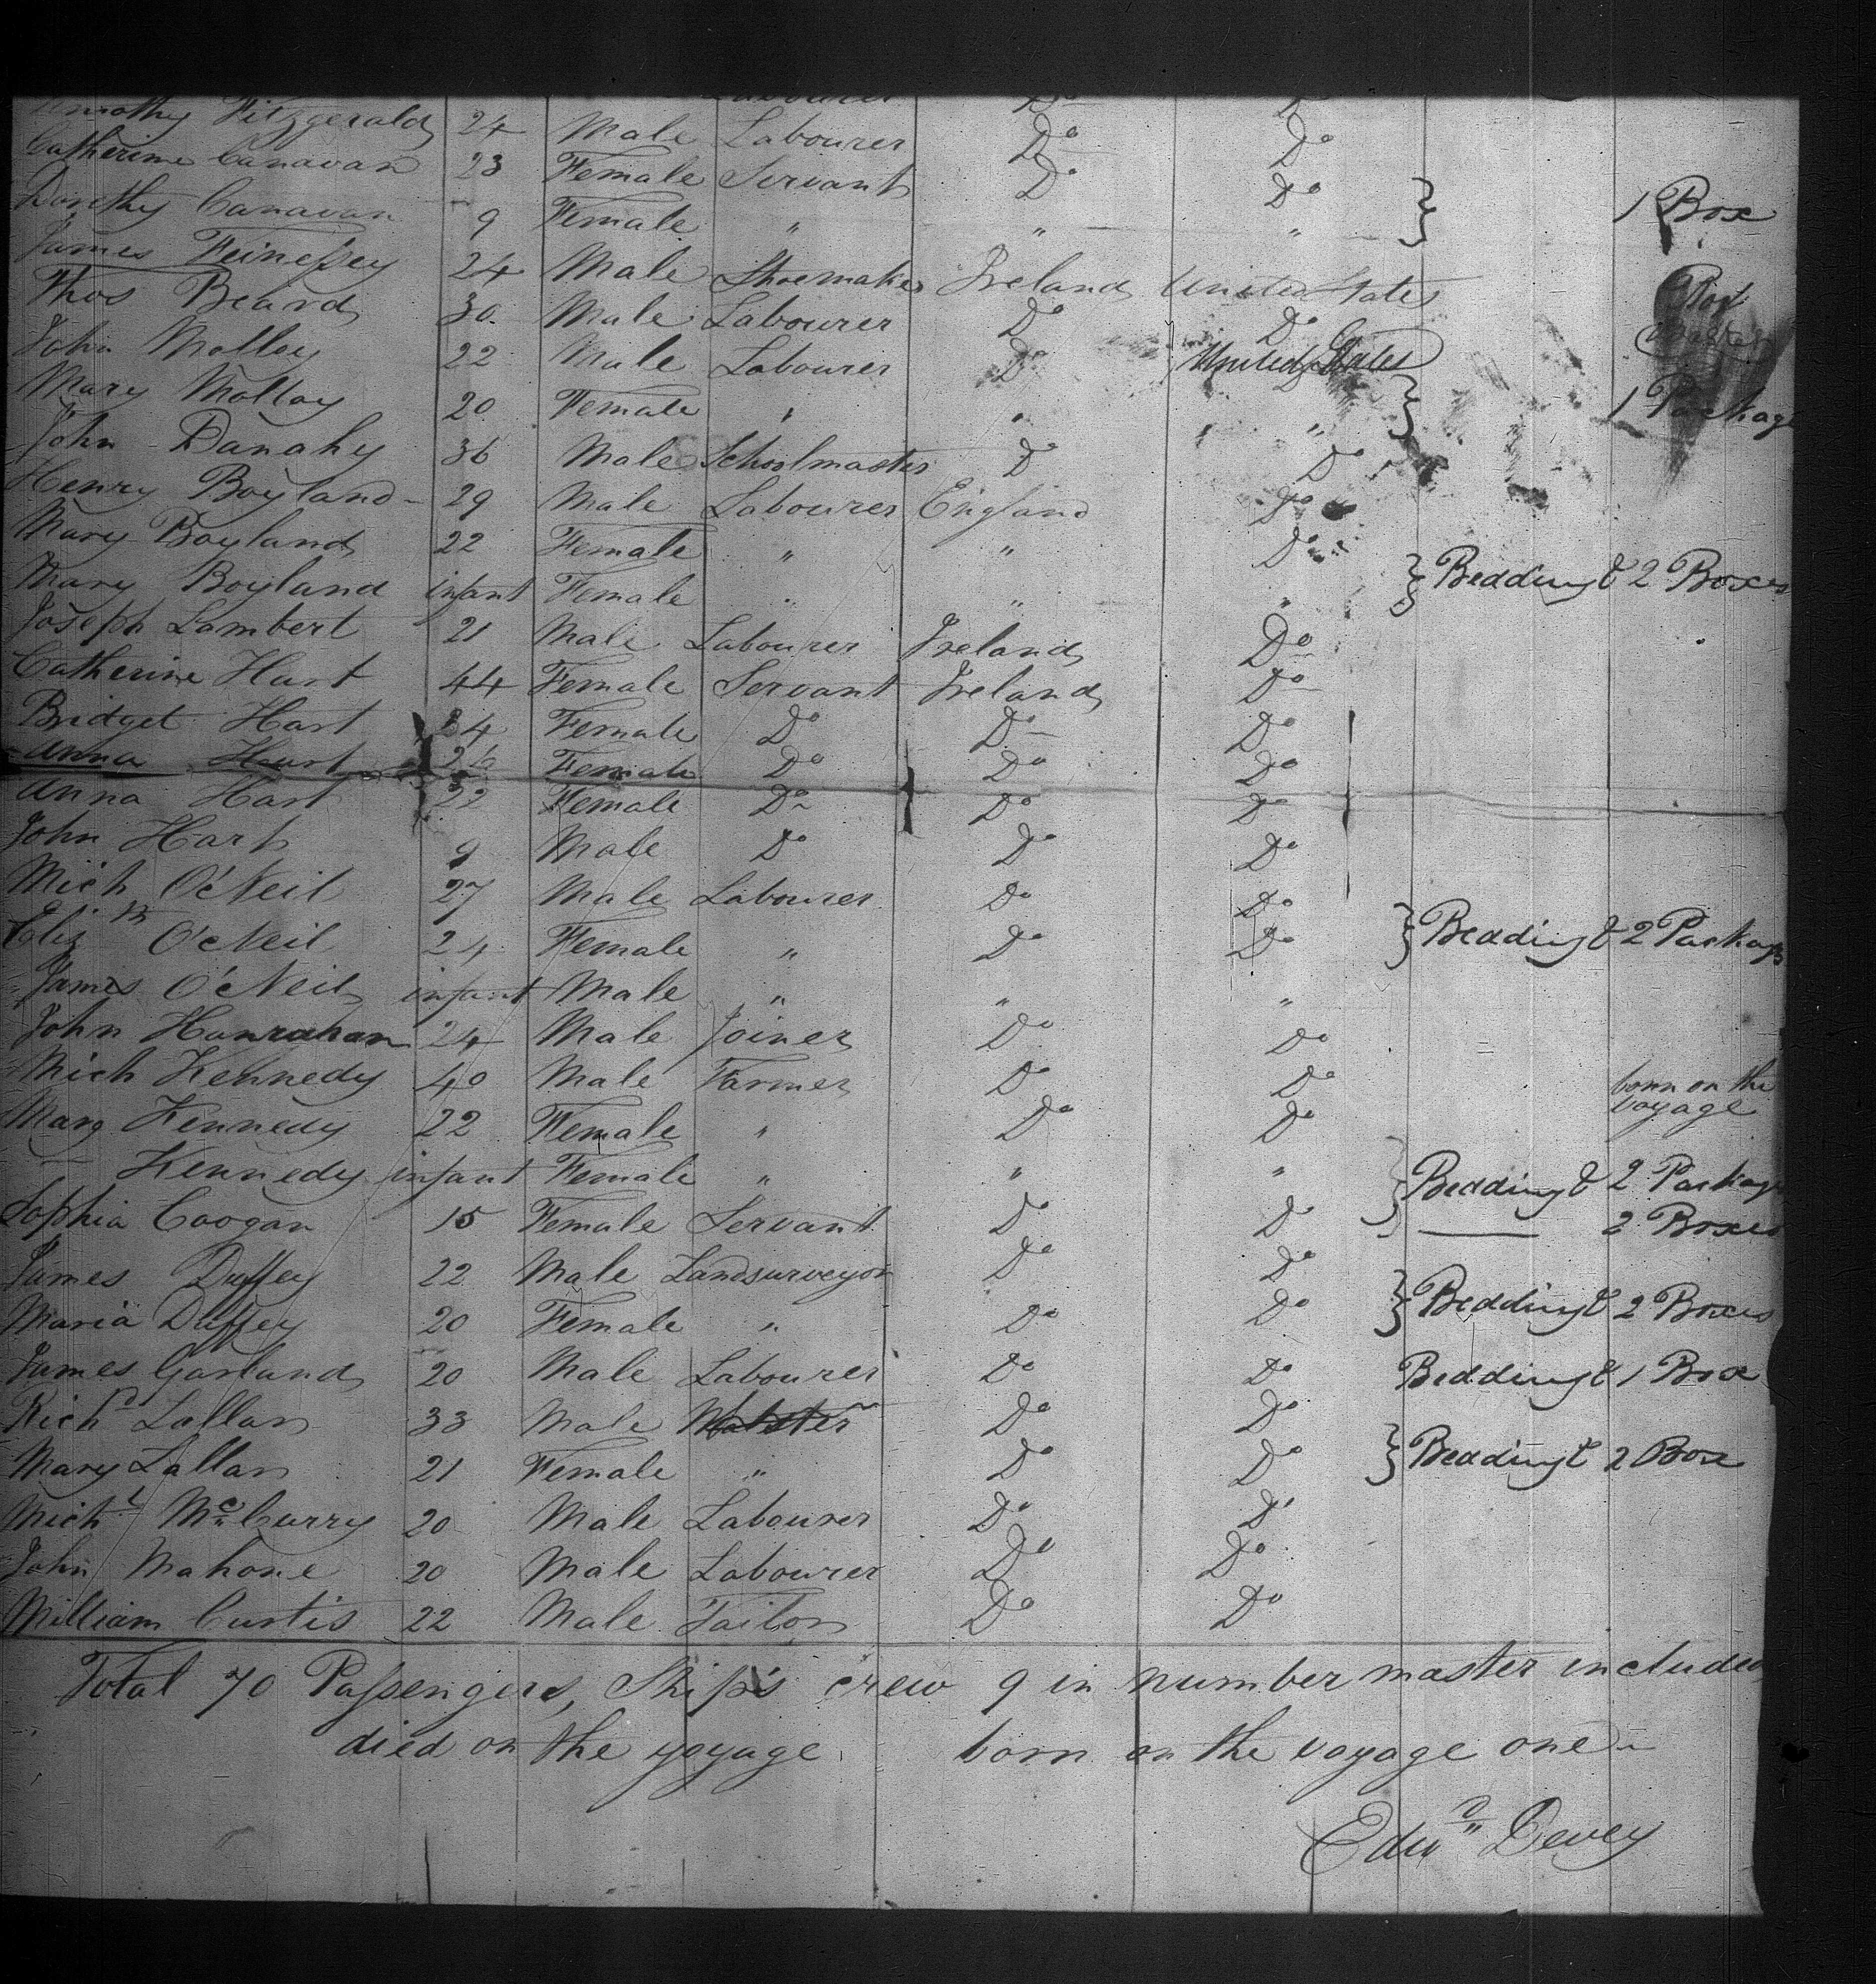 Labourer Do Do
Timothy Fitzgerald 24 Male Labourer Do Do
Catherine Canavan 23 Female Servant Do Do
Dorothy Canavan 9 Female " " " } 1 Box
James 24 Male Shoemaker Ireland United States
Thos Beard 30 Male Labourer Do Do
John Molloy 22 Male Labourer Do United States
Mary Molloy 20 Female " " " } 1 Package
John Danahy 36 Male Schoolmaster Do Do
Henry Boyland 29 Male Labourer England Do
Mary Boyland 22 Female " " Do
Mary Boyland infant Female " " " } Bedding & 2 Boxes
Joseph Lambert 21 Male Labourer Ireland Do
Catherine Hart 44 Female Servant Ireland Do
Bridget Hart 24 Female Do Do Do
Anna Hart Female Do Do Do
Anna Hart 22 Female Do Do Do
John Hart 9 Male Do Do Do
Mich O'Neil 27 Male Labourer Do Do
Eliz th O'Neil 24 Female " Do Do } Bedding & 2 Packages
James O'Neil infant Male " " "
John Hanrahan 24 Male Joiner Do Do
Mich Kennedy 40 Male Farmer Do Do born on the
voyage
Marg Kennedy 22 Female " Do Do
— Kennedy infant Female " " " } Bedding & 2 Package
Sophia Coogan 15 Female Servant Do Do —— 2 Boxes
James Duffey 22 Male Landsurveyor Do Do
Maria Duffey 20 Female " Do Do } Bedding & 2 Boxes
James Garland 20 Male Labourer Do Do Bedding & 1 Box
Richd Lallan 33 Male Do Do
Mary Lallan 21 Female " Do Do } Bedding & 2 Box
Michl McCurry 20 Male Labourer Do Do
John Mahone 20 Male Labourer Do Do
William Curtis 22 Male Tailor Do Do
Total 70 Passengers, Ship's crew 9 in number master included
died on the voyage born on the voyage one
Edwd Devey